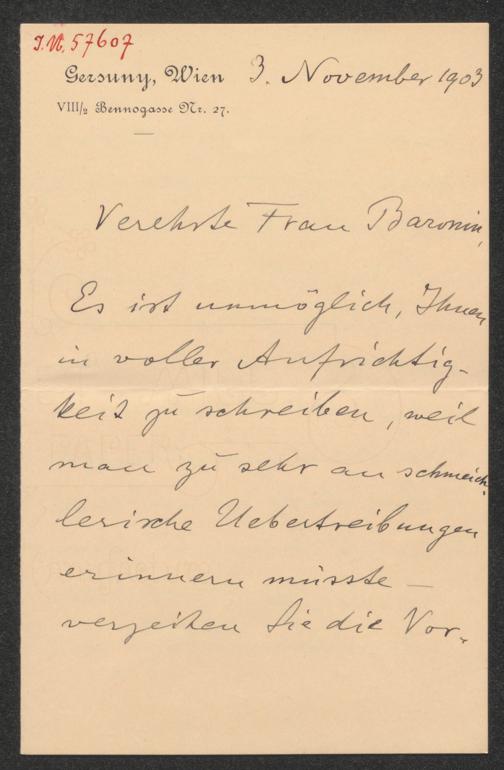 I.N. 57607
Gersuny, Wien 3. November 1903
VIII/2 Bennogasse Nr. 27.
Verehrte Frau Baronin,
Es ist unmöglich, Ihnen
in voller Aufrichtig-
keit zu schreiben, weil
man zu sehr an schmeich-
lerische Uebertreibungen
erinnern müsste —
verzeihen Sie die Vor-